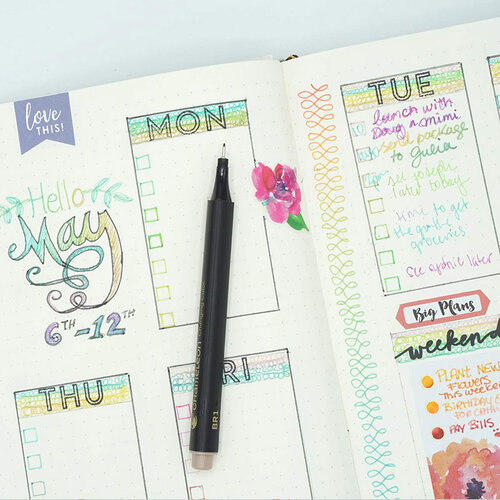 love
THIS!
Hello
May
6TH -12TH
MON
THU
RI
Chameleon
BR1
TUE
lunch with
Doug & mimi
send package
to Julia
see joseph
later today
time to get
the
groceries
see later
Big Plans
weekend
PLANT NEW
Flowers
This weeke
BIRTHDAY
FOR CATH
PAY BILLS